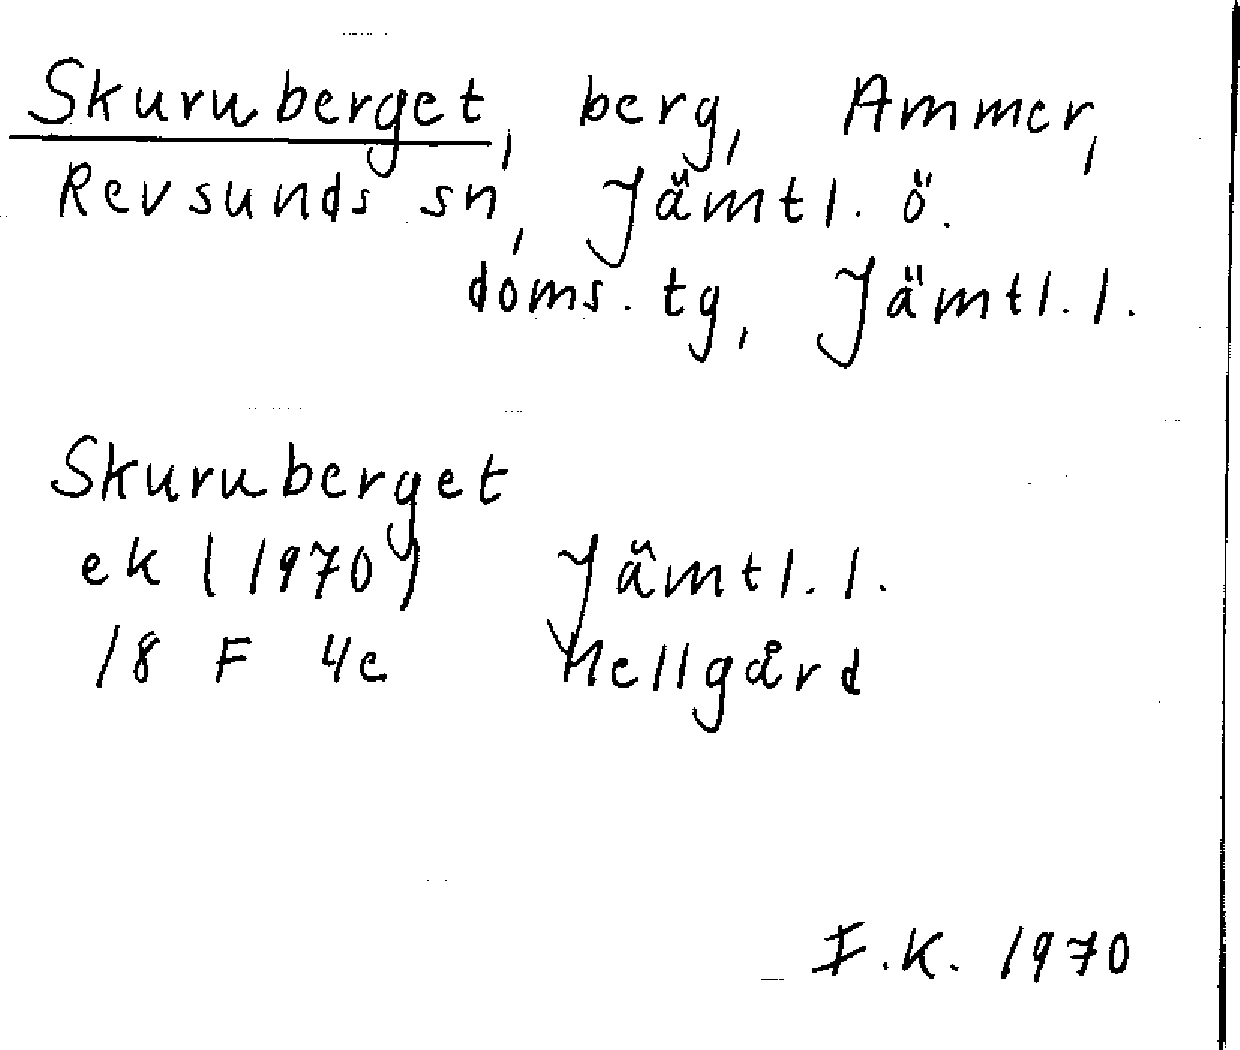 Skuruberget, berg, Ammer,
Revsunds sn, Jämtl. ö.
doms. tg, Jämtl. l.
Skuruberget
ek (1970) Jämtl. l.
18 F 4c Hellgård
F.K. 1970